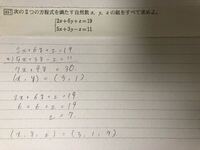 次の2つの方程式を満たす自然数 x, y, z の組をすべて求めよ。
2x+6y+z=19
5x+3y-z=11
2x+6y+z=19
+) 5x+3y-z=11
7x+9y=30
(x, y) = (3, 1)
2x+6y+z=19
6+6+z=19
z=7
(x, y, z) = (3, 1, 7)